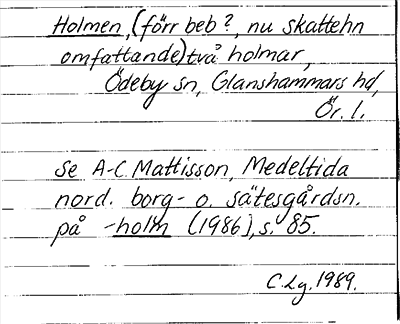 Holmen, (förr beb?, nu skattehn
omfattande) två holmar,
Ödeby sn, Glanshammars hd,
Ör. l.
Se A-C. Mattisson, Medeltida
nord. borg- o. sätesgårdsn.
på -holm (1986), s. 85.
C. Lg. 1989.